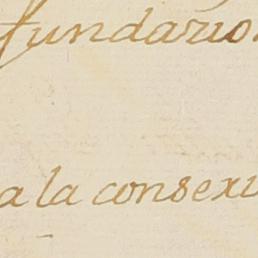 fundario
a la consexu